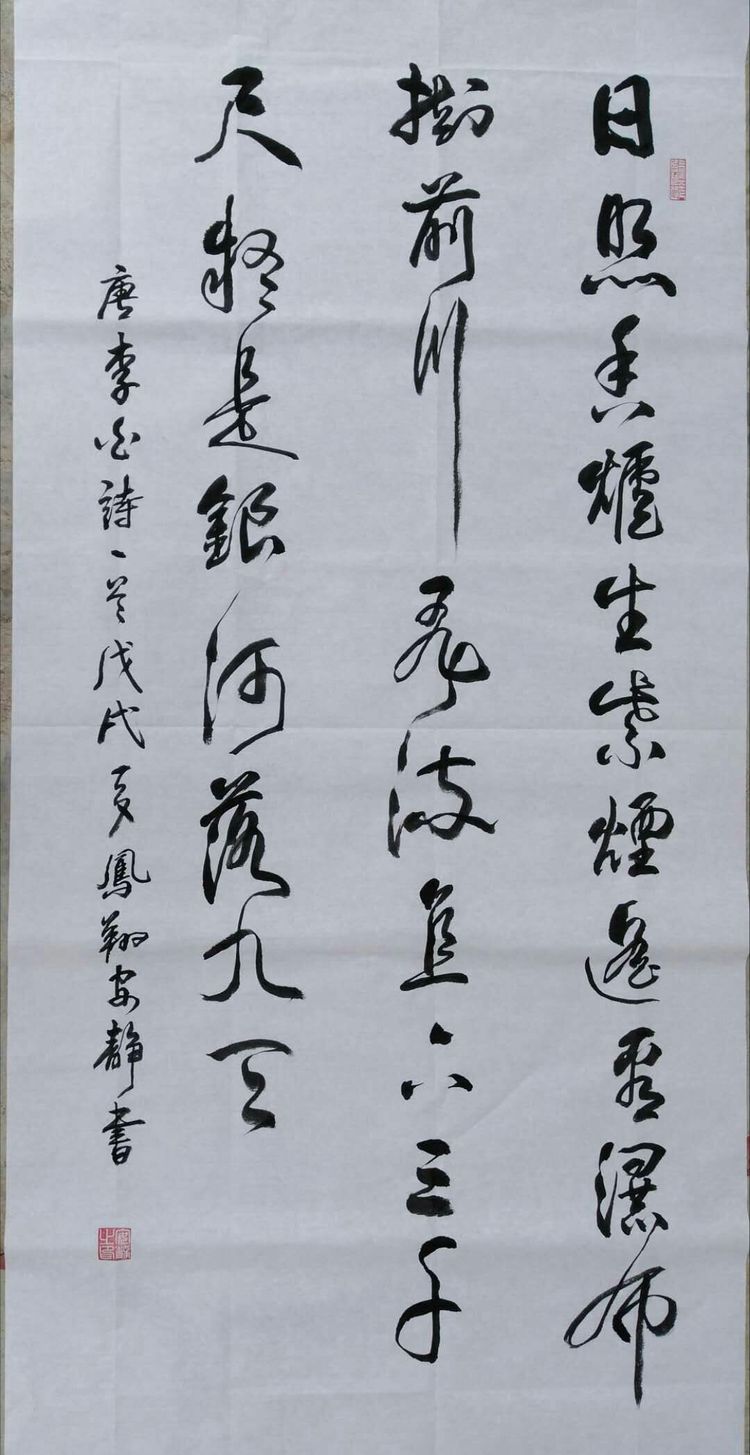 日照香爐生紫煙遙看瀑布
掛前川飛流直下三千
尺疑是銀河落九天
唐李白詩一首戊戌夏鳳翔安靜書